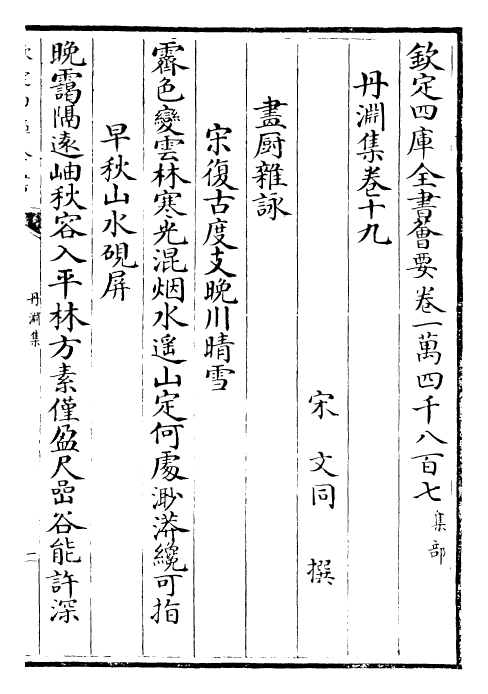 欽定四庫全書薈要卷一萬四千八百七 集部
丹淵集卷十九
宋 文同 撰
畫厨雜詠
宋復古度支晚川晴雪
霽色變雲林寒光混烟水遙山定何處渺漭纔可指
早秋山水硯屏
晚靄隔遠岫秋容入平林方素僅盈尺嵒谷能許深
丹淵集